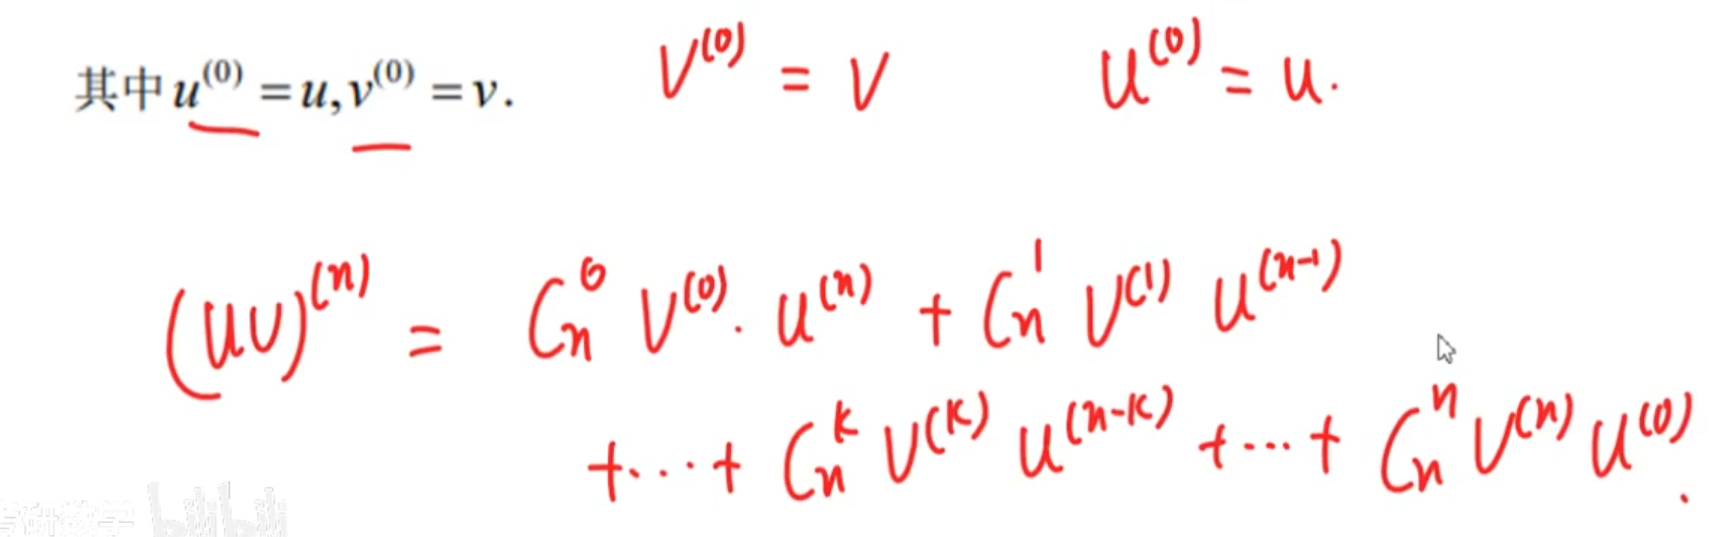 其中 u⁽⁰⁾ = u, v⁽⁰⁾ = v.   V⁽⁰⁾ = V   u⁽⁰⁾ = u.
(uv)⁽ⁿ⁾ = Cₙ⁰ V⁽⁰⁾. u⁽ⁿ⁾ + Cₙ¹ V⁽¹⁾ u⁽ⁿ⁻¹⁾
+...+ Cₙᵏ V⁽ᵏ⁾ u⁽ⁿ⁻ᵏ⁾ +...+ Cₙⁿ V⁽ⁿ⁾ u⁽⁰⁾.
考研数学 bilibili